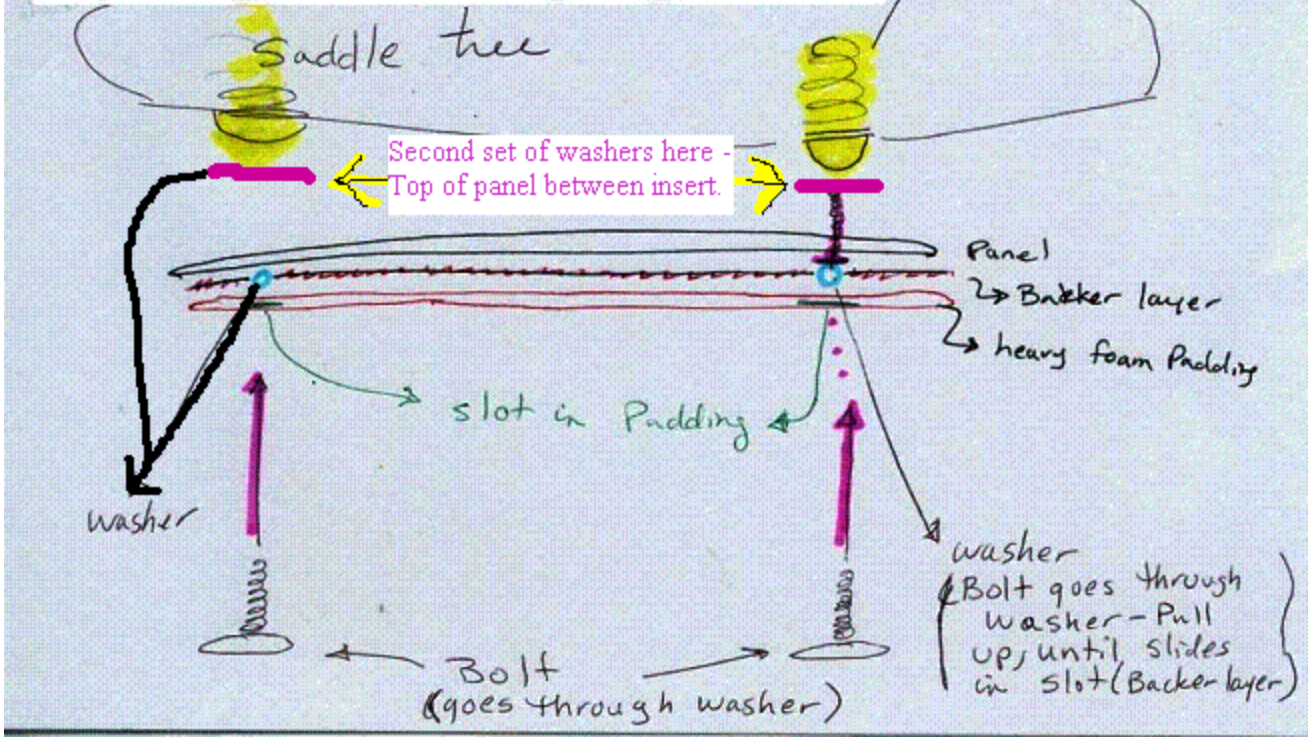 Saddle tree
Second set of washers here -
Top of panel between insert.
Panel
Bakker layer
heavy foam Padding
slot in Padding
washer
washer
(Bolt goes through
washer - Pull
up, until slides
in slot (Backer layer)
Bolt
(goes through washer)